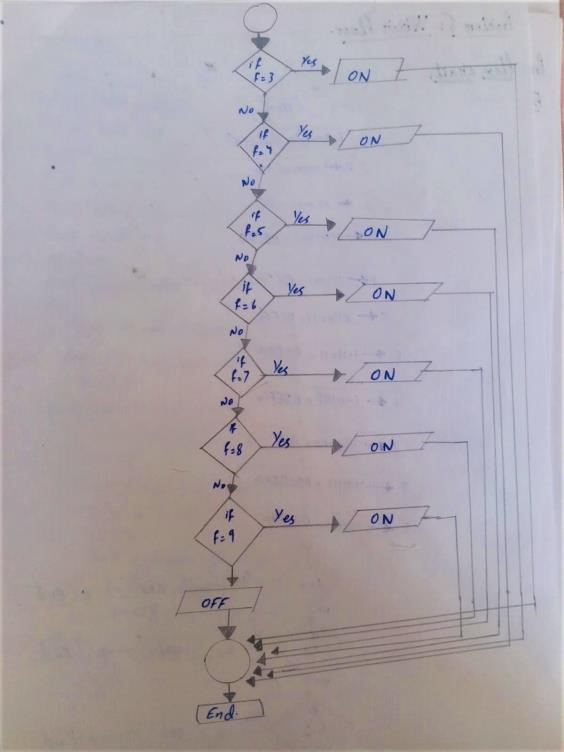 if
f=3
Yes
ON
No
if
f=4
Yes
ON
No
if
f=5
Yes
ON
No
if
f=6
Yes
ON
No
if
f=7
Yes
ON
No
if
f=8
Yes
ON
No
if
f=9
Yes
ON
OFF
End.